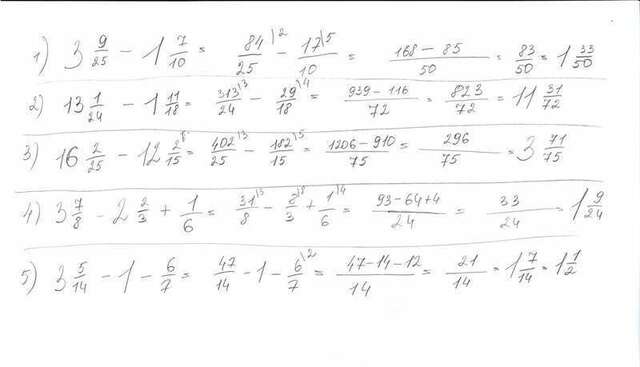 1) 3 9/25 - 1 7/10 = 84\2/25 - 17\5/10 = 168 - 85/50 = 83/50 = 1 33/50
2) 13 1/24 - 1 11/18 = 313\3/24 - 29\4/18 = 939 - 116/72 = 823/72 = 11 31/72
3) 16 2/25 - 12 2/15 = 402\3/25 - 182\5/15 = 1206 - 910/75 = 296/75 = 3 71/75
4) 3 7/8 - 2 2/3 + 1/6 = 31\3/8 - 8\8/3 + 1\4/6 = 93 - 64 + 4/24 = 33/24 = 1 9/24
5) 3 5/14 - 1 - 6/7 = 47/14 - 1 - 6\2/7 = 47 - 14 - 12/14 = 21/14 = 1 7/14 = 1 1/2